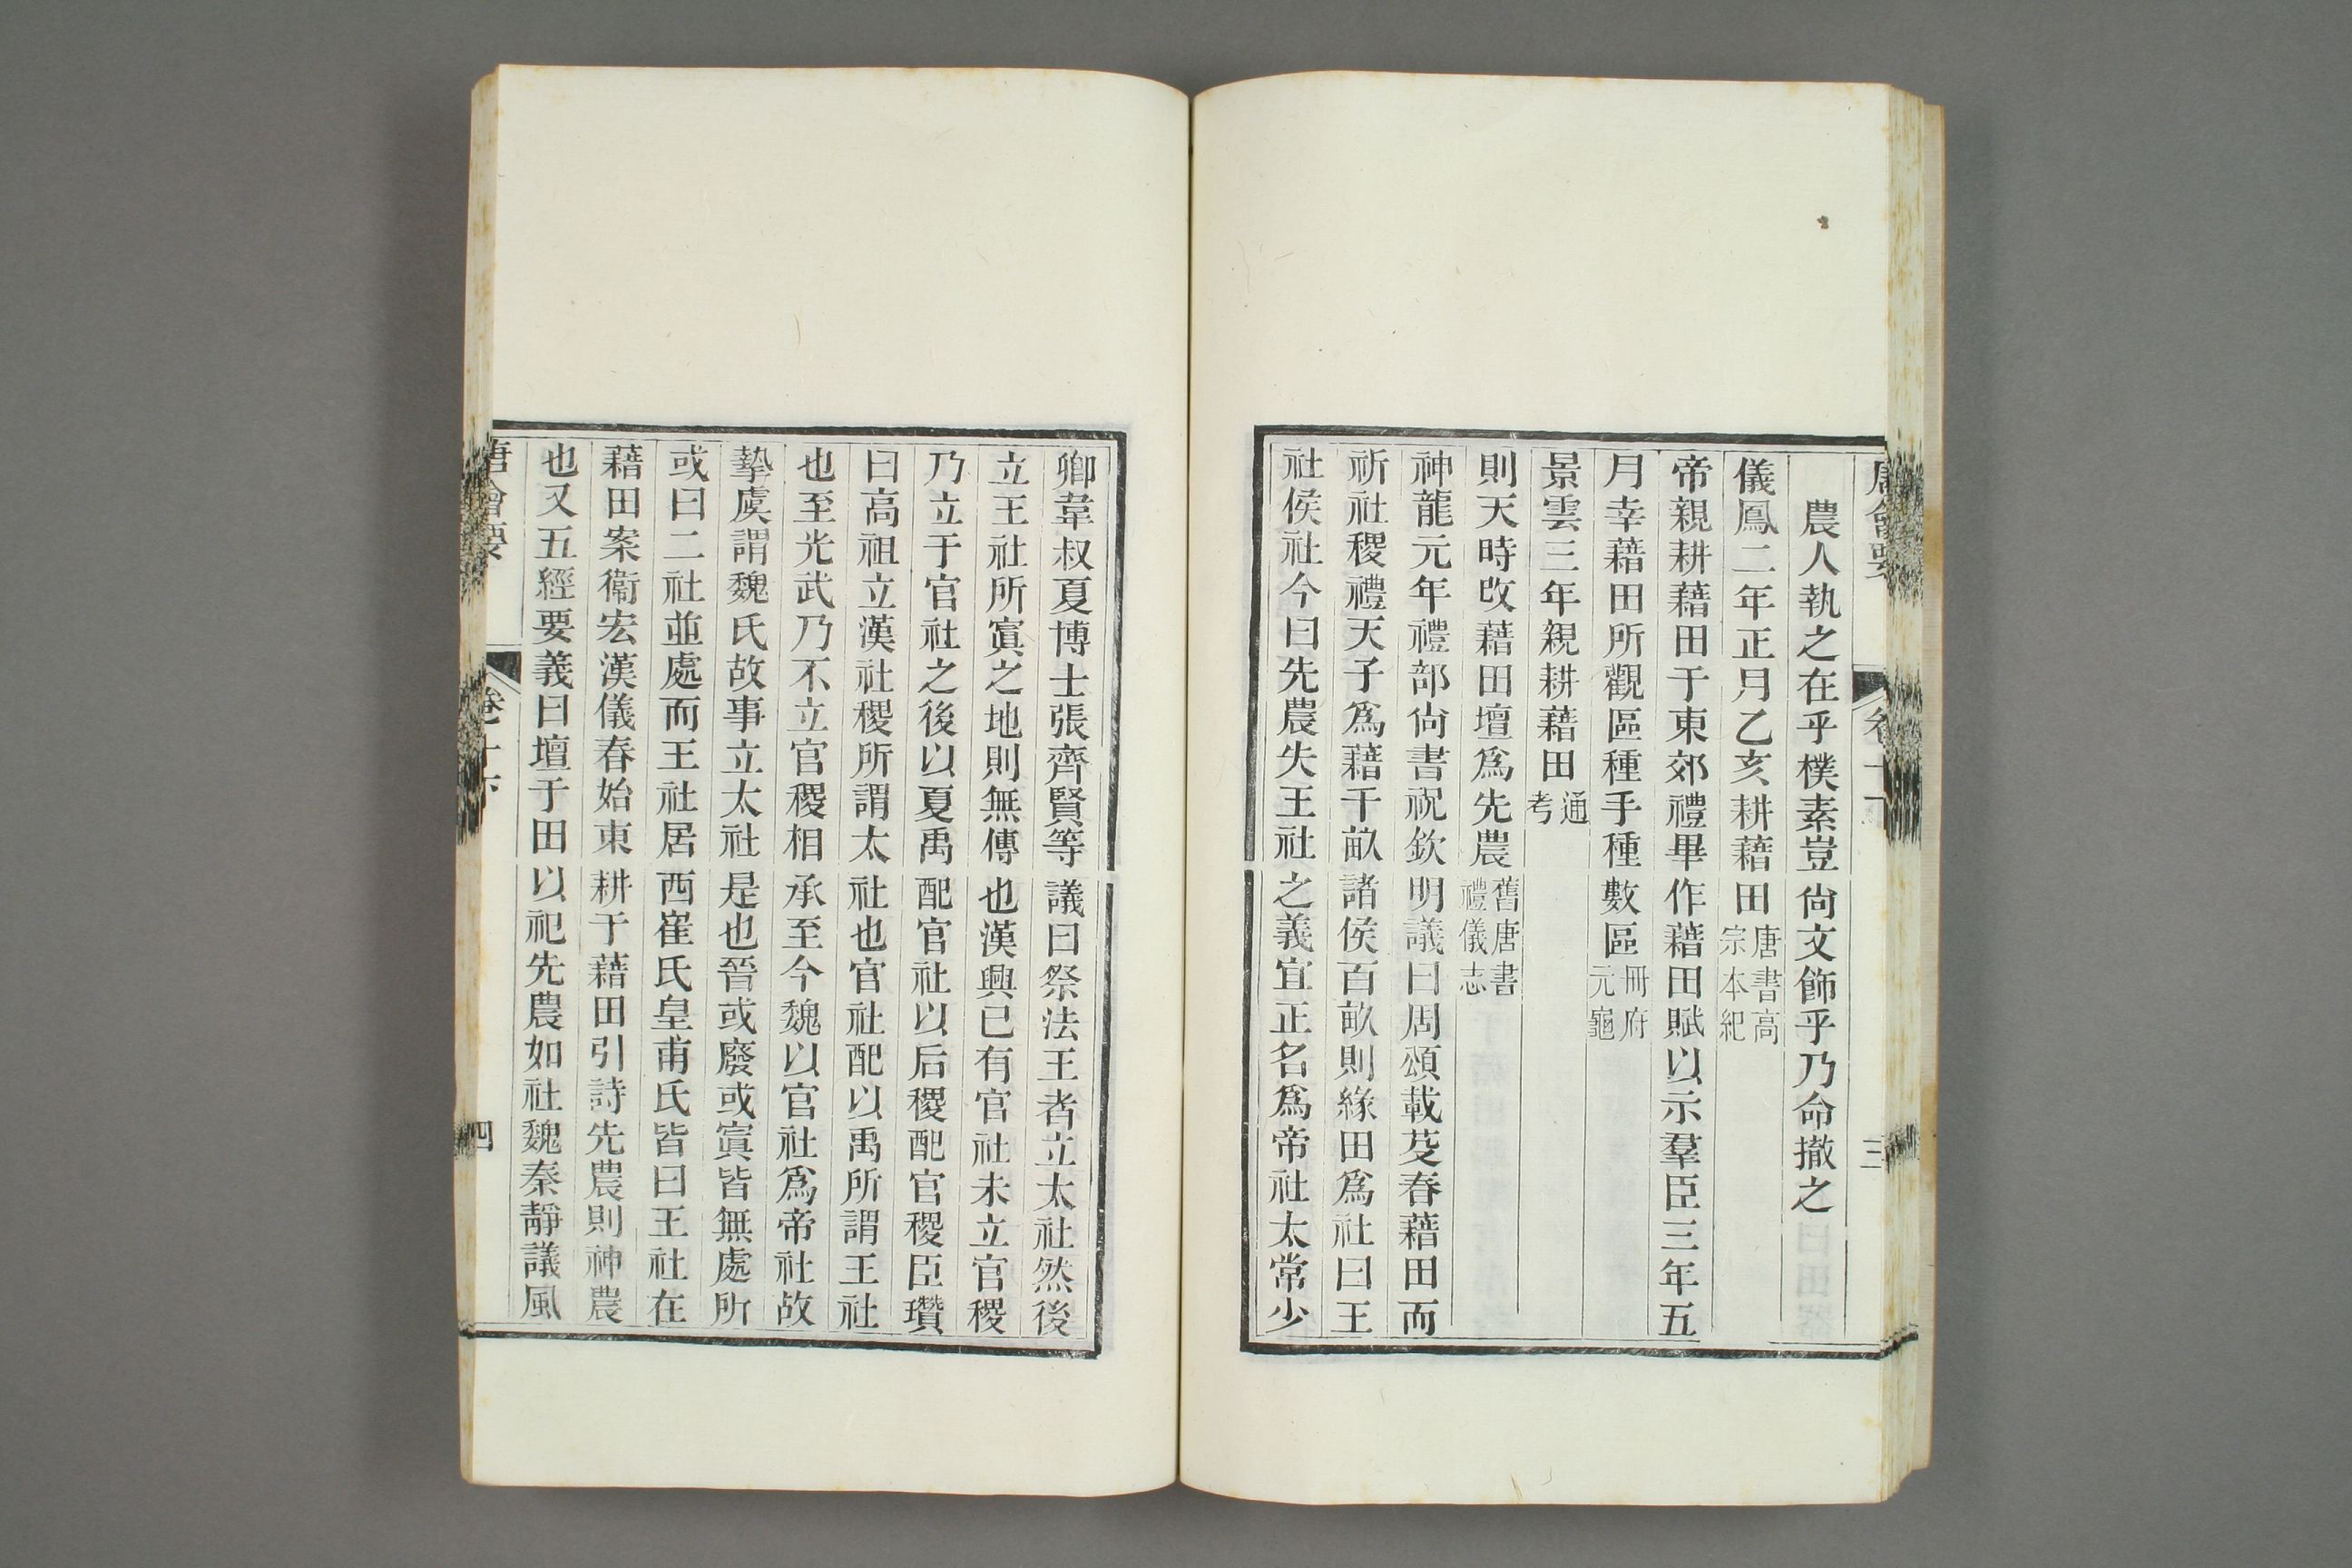 農人執之在乎樸素豈尙文飾乎乃命撤之
儀鳳二年正月乙亥耕藉田唐書高宗本紀
帝親耕藉田于東郊禮畢作藉田賦以示羣臣三年五
月幸藉田所觀區種手種數區冊府元龜
景雲三年親耕藉田通考
則天時改藉田壇爲先農舊唐書禮儀志
神龍元年禮部尙書祝欽明議曰周頌載芟春藉田而
祈社稷禮天子爲藉千畝諸侯百畝則緣田爲社曰王
社侯社今曰先農失王社之義宜正名爲帝社太常少
三
卿韋叔夏博士張齊賢等議曰祭法王者立太社然後
立王社所寘之地則無傳也漢興已有官社未立官稷
乃立于官社之後以夏禹配官社以后稷配官稷臣瓚
曰高祖立漢社稷所謂太社也官社配以禹所謂王社
也至光武乃不立官稷相承至今魏以官社爲帝社故
摯虞謂魏氏故事立太社是也晉或廢或寘皆無處所
或曰二社並處而王社居西崔氏皇甫氏皆曰王社在
藉田案衞宏漢儀春始東耕于藉田引詩先農則神農
也又五經要義曰壇于田以祀先農如社魏秦靜議風
唐會要
卷十下
四